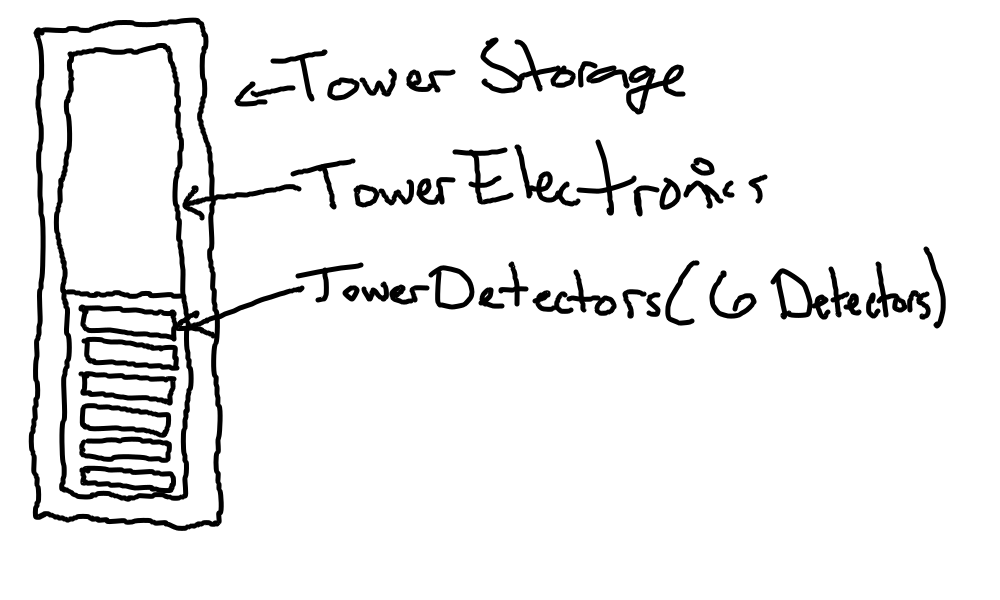 Tower Storage
Tower Electronics
Tower Detectors (6 Detectors)